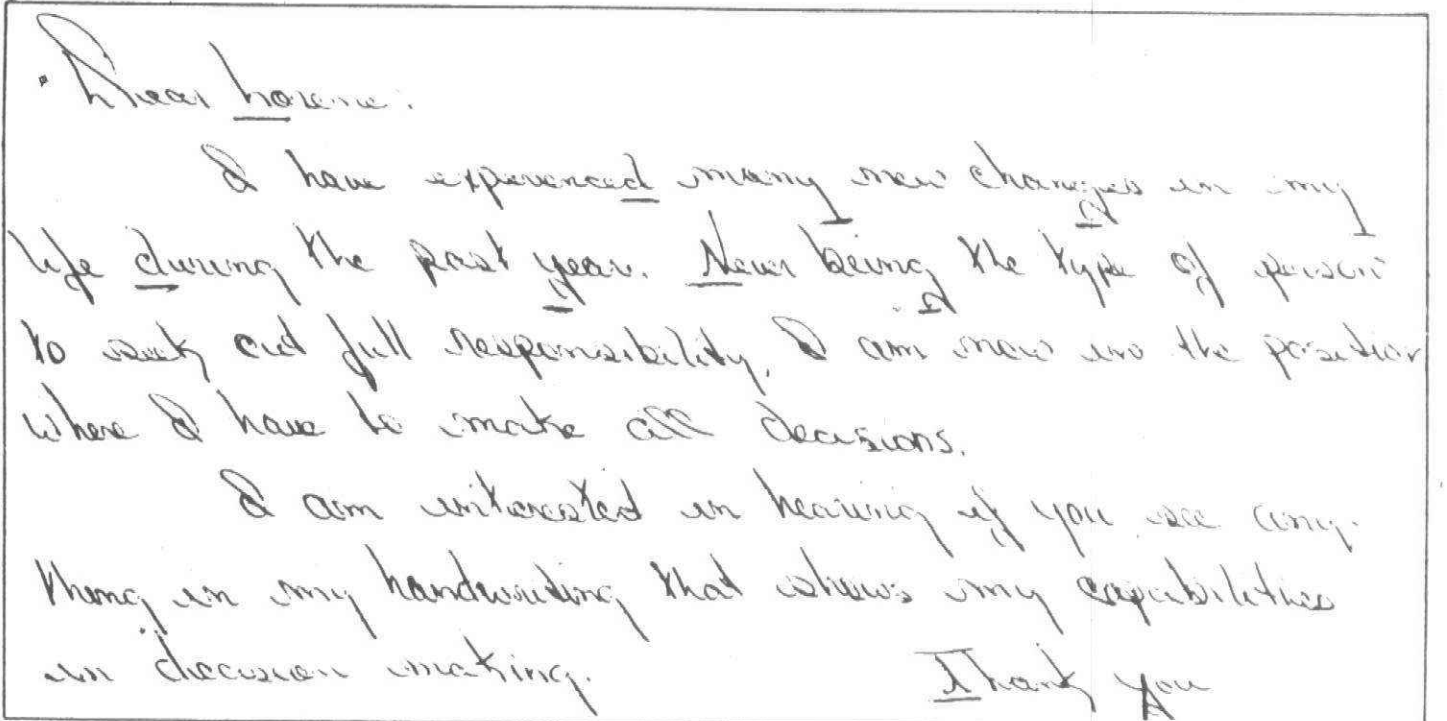 Dear Lorene:
I have experienced many new changes in my
life during the past year. Never being the type of person
to seek out full responsibility, I am now in the position
where I have to make all decisions.
I am interested in hearing if you see any-
thing in my handwriting that shows my capabilities
in decision making.
Thank you